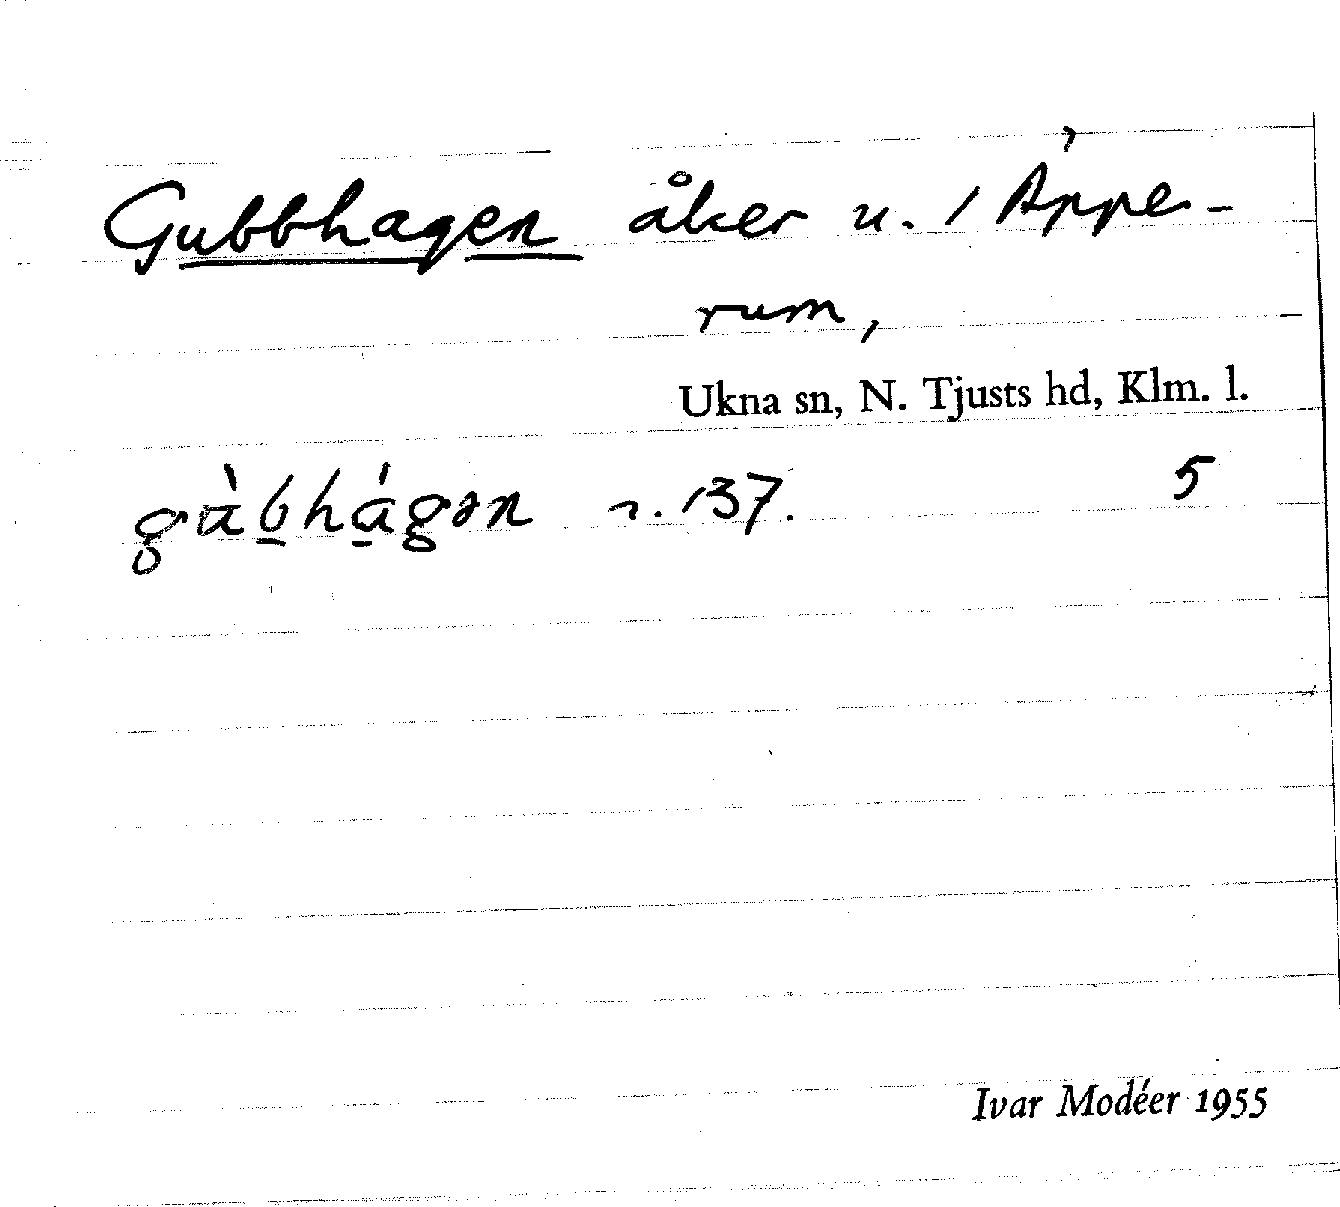 Gubbhagen åker u. / Äppe-
rum,
Ukna sn, N. Tjusts hd, Klm. l.
gàbhágən n. 137. 5
Ivar Modéer 1955